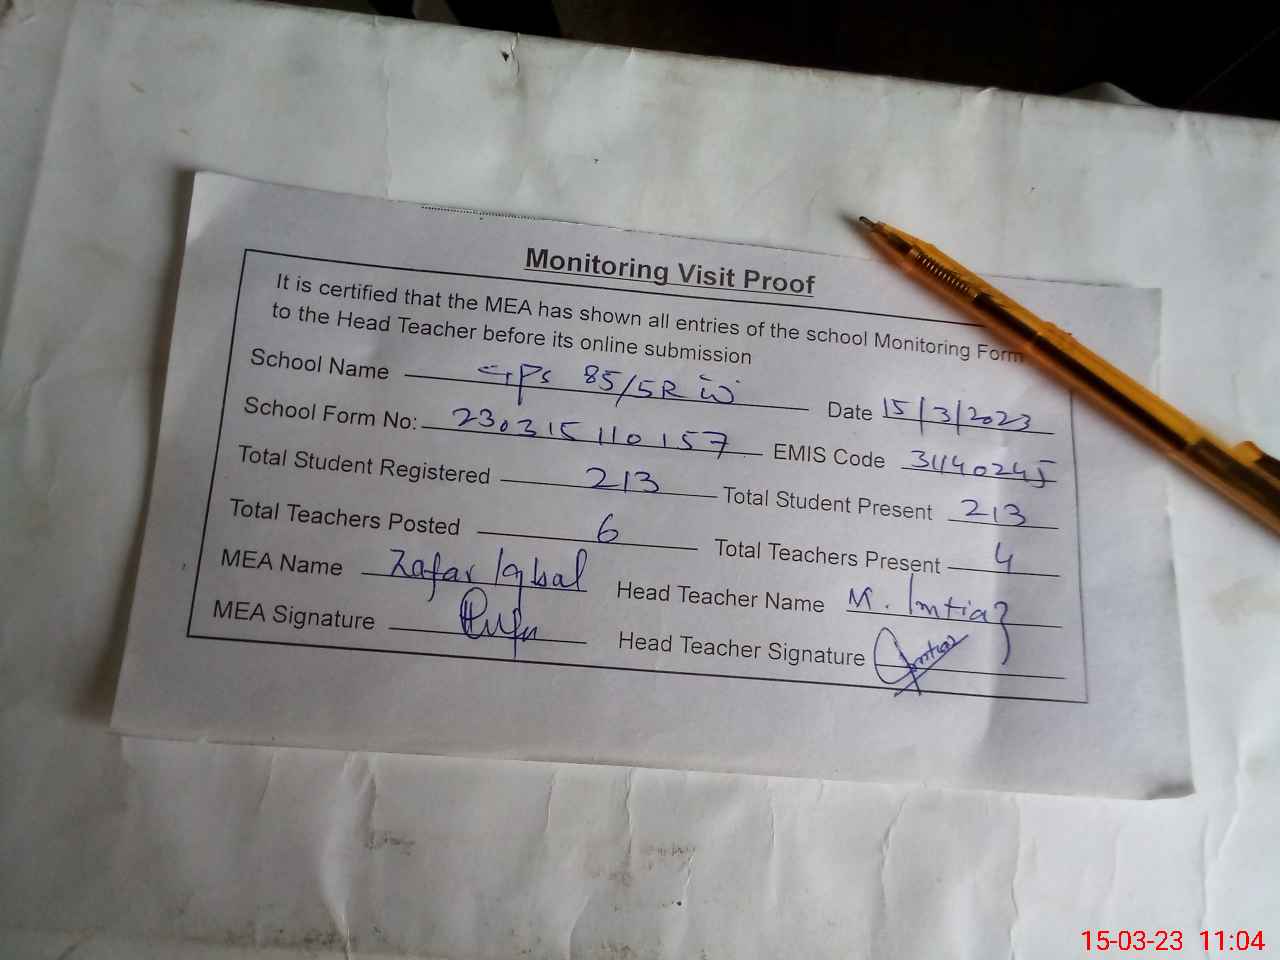 Monitoring Visit Proof
It is certified that the MEA has shown all entries of the school Monitoring Form
to the Head Teacher before its online submission
School Name GPS 85/5R W Date 15/3/2023
School Form No: 230315110157 EMIS Code 31140245
Total Student Registered 213 Total Student Present 213
Total Teachers Posted 6 Total Teachers Present 4
MEA Name Zafar Iqbal Head Teacher Name M. Imtiaz
MEA Signature Head Teacher Signature Imtiaz
15-03-23 11:04